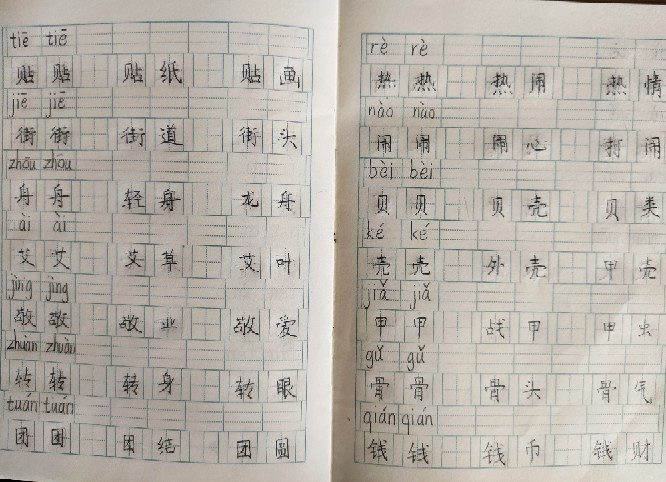 tiē tiē
贴 贴 贴 纸 贴 画
jiē jiē
街 街 街 道 街 头
zhōu zhōu
舟 舟 轻 舟 龙 舟
ài ài
艾 艾 艾 草 艾 叶
jìng jìng
敬 敬 敬 业 敬 爱
zhuàn zhuàn
转 转 转 身 转 眼
tuán tuán
团 团 团 结 团 圆
rè rè
热 热 热 闹 热 情
nào nào
闹 闹 闹 心 打 闹
bèi bèi
贝 贝 贝 壳 贝 类
ké ké
壳 壳 外 壳 甲 壳
jiǎ jiǎ
甲 甲 战 甲 甲 虫
gǔ gǔ
骨 骨 骨 头 骨 气
qián qián
钱 钱 钱 币 钱 财